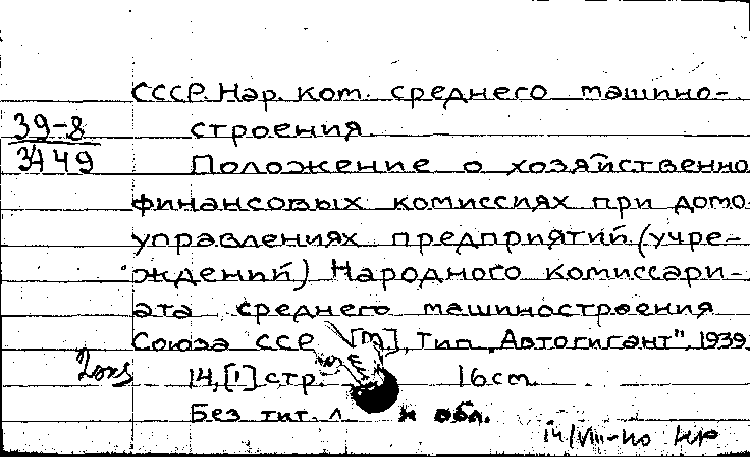 СССР. Нар. ком. среднего машино-
39-8
строения.
3449
Положение о хозяйственно
финансовых комиссиях при домо
управлениях предприятий (учре-
ждений) Народного комиссари-
ата среднего машиностроения
Союза ССР [М], Тип. „Автогигант", 1939.
2 экз
14, [1] стр. 16 cm.
Без тит. л. и обл.
14/VIII-40